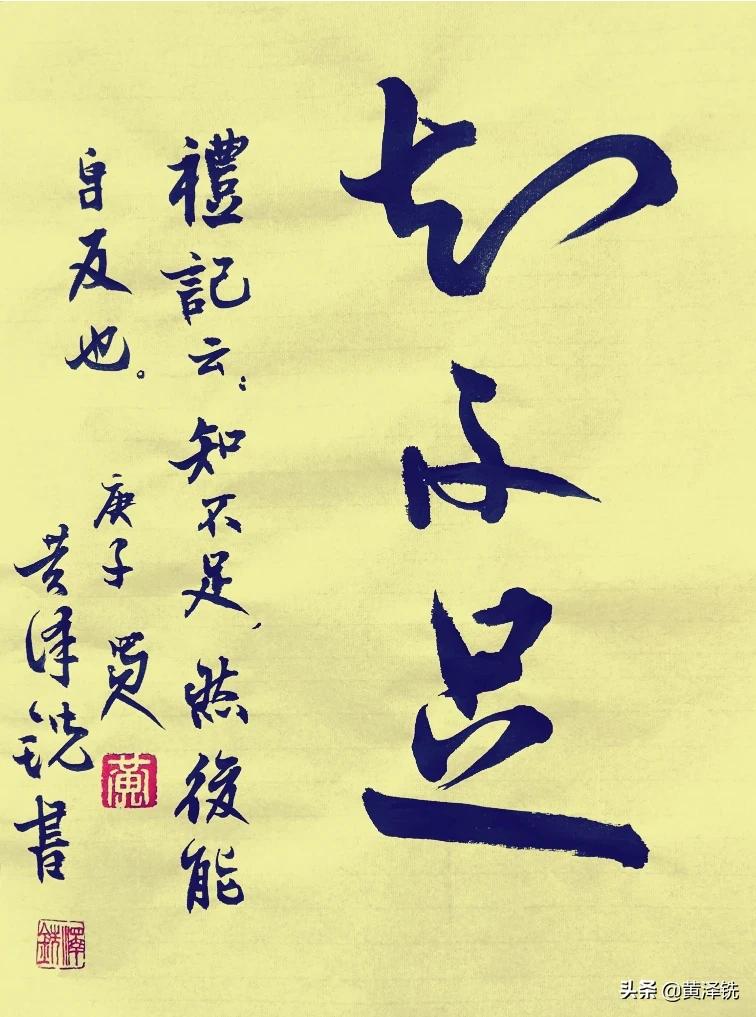 知不足
禮記云：知不足，然後能
自反也。
庚子夏
黄泽铣書
黄
澤銑
头条 @黄泽铣